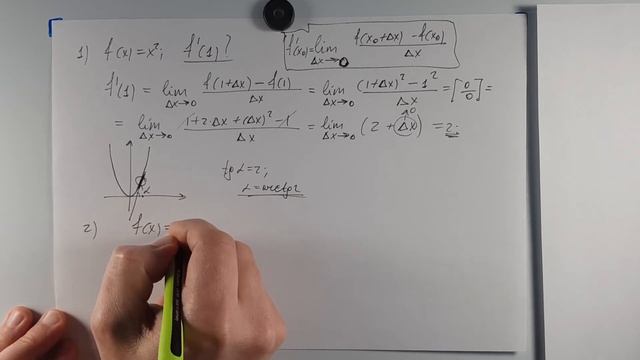 1) f(x)=x²; f'(1)? f'(x₀)=lim Δx→0 f(x₀+Δx)-f(x₀) / Δx
f'(1) = lim Δx→0 f(1+Δx)-f(1) / Δx = lim Δx→0 (1+Δx)²-1² / Δx = [0/0] =
= lim Δx→0 1+2·Δx+(Δx)²-1 / Δx = lim Δx→0 (2+Δx) = 2;
0
α
tg α=2;
α=arctg2
2) f(x)=